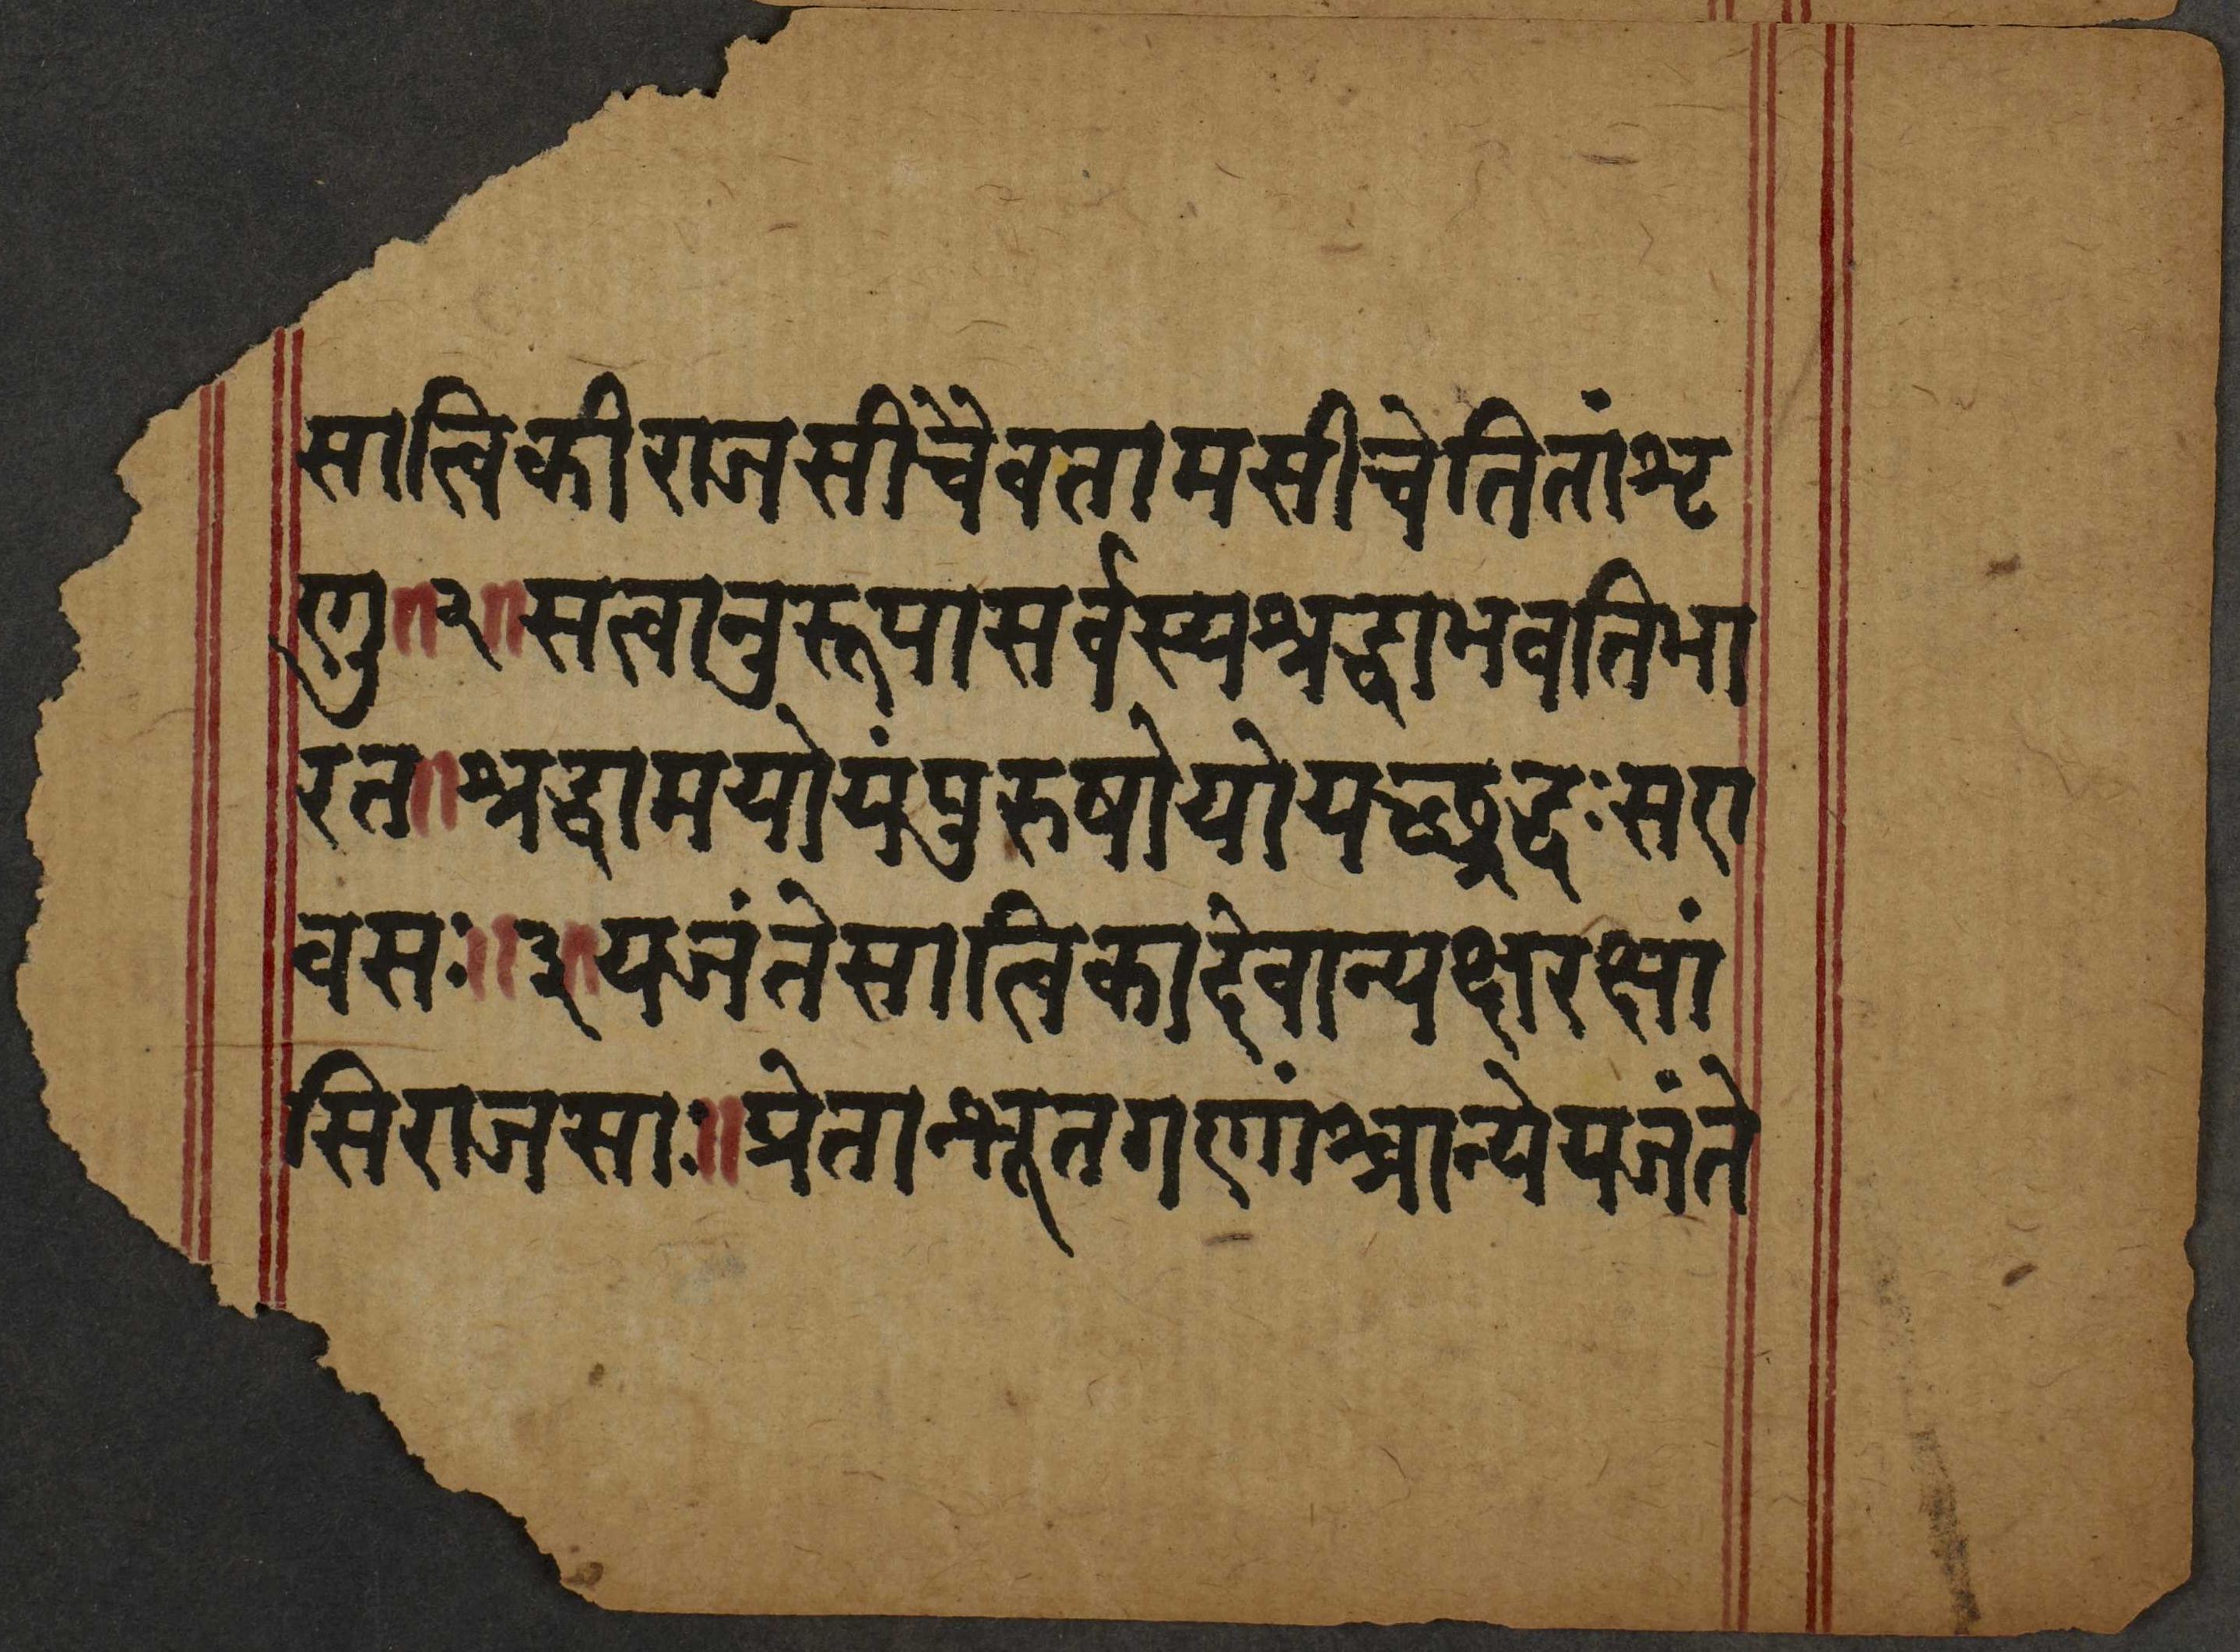 सात्विकीराजसीचैवतामसीचेतितांशृ
णु॥२॥सत्वानुरूपासर्वस्यश्रद्धाभवतिभा
रत॥श्रद्धामयोयंपुरुषोयोयच्छ्रद्धःसए
वसः॥३॥यजंतेसात्विकादेवान्यक्षरक्षां
सिराजसाः॥प्रेतान्भूतगणांश्चान्येयजंते